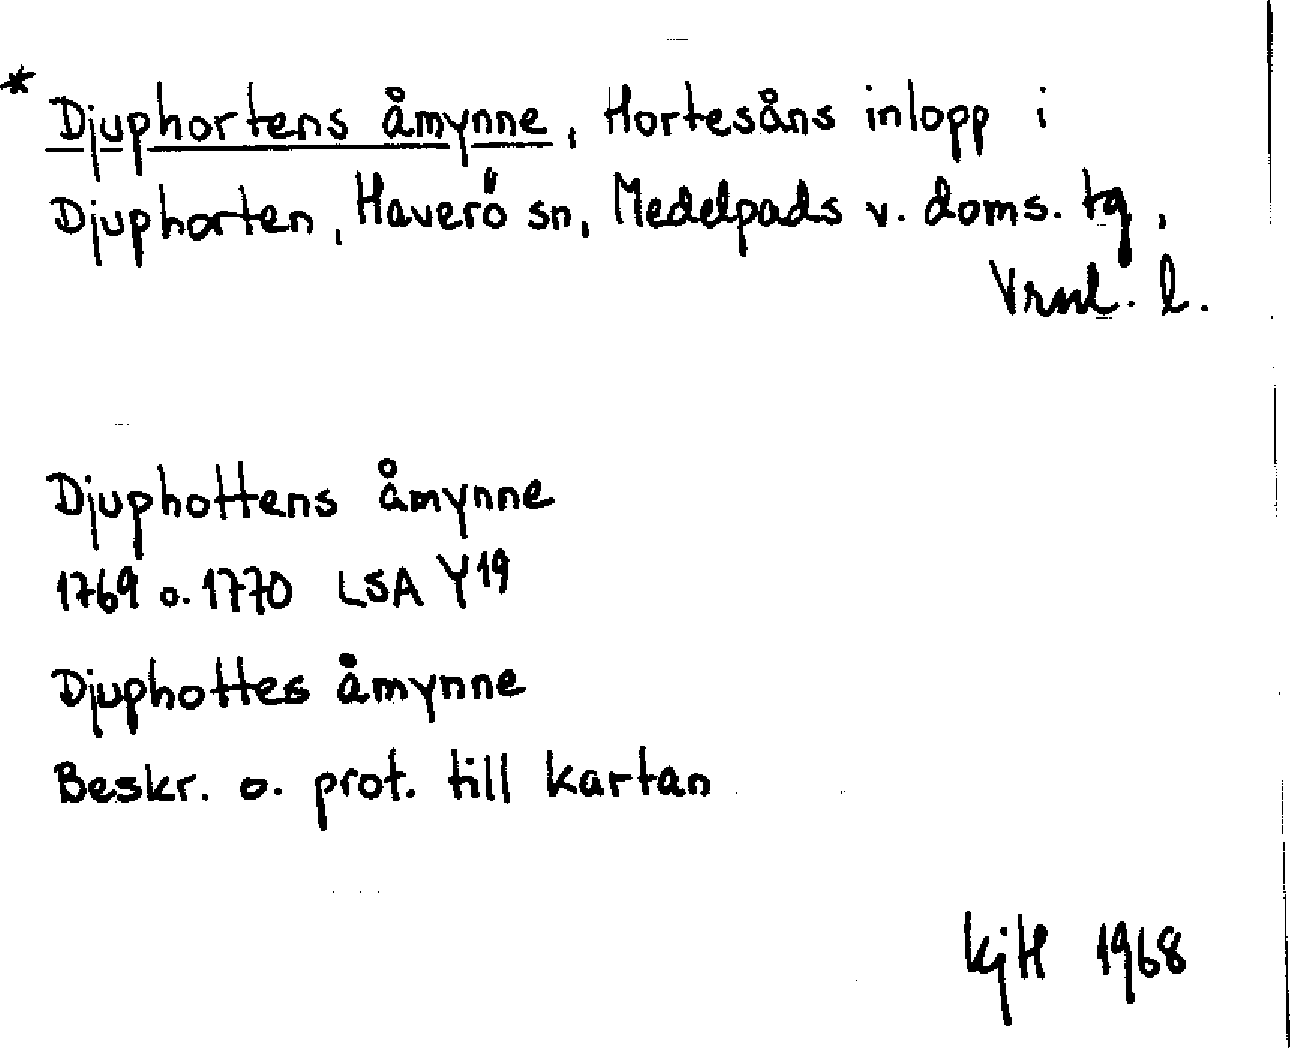 * Djuphortens åmynne, Hortesåns inlopp i
Djuphorten, Haverö sn, Medelpads v. doms. tg,
Vrnl. l.
Djuphottens åmynne
1769 o. 1770 LSA Y19
Djuphottes åmynne
Beskr. o. prot. till kartan
KjH 1968